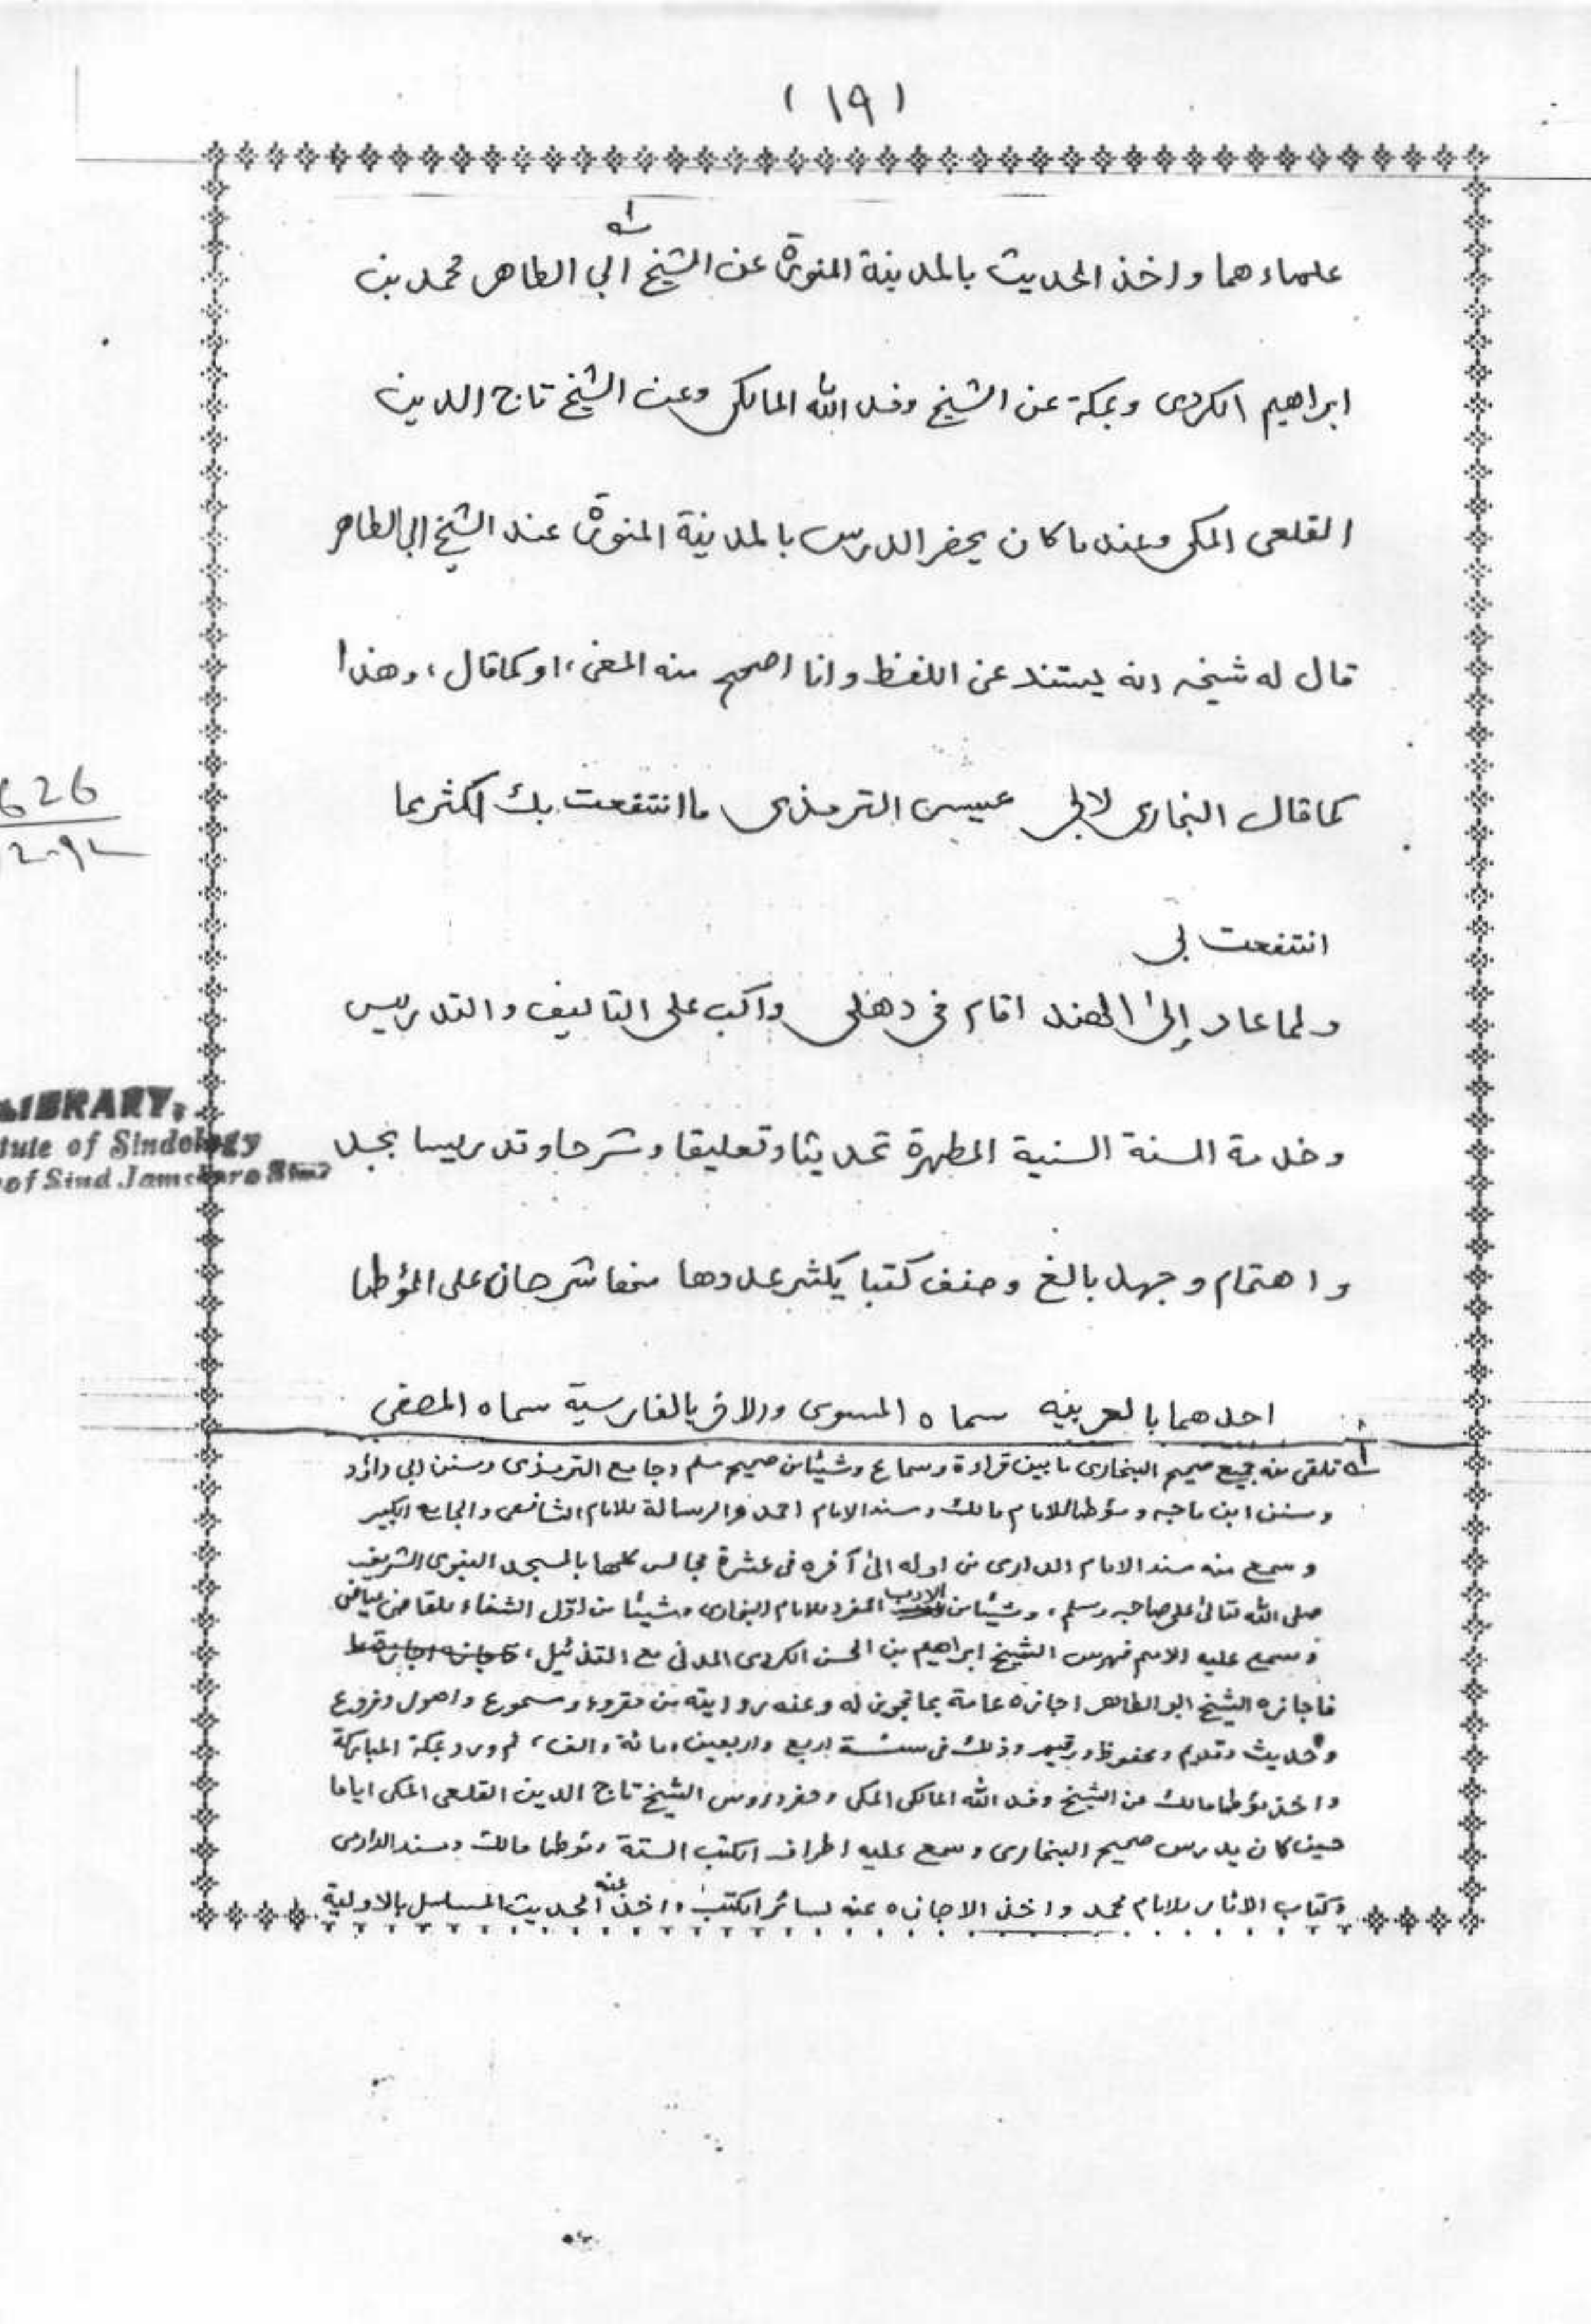 (١٩)
علماءهما واخذ الحديث بالمدينة المنورة عن الشيخ ابي الطاهر محمد بن
١؎
ابراهيم الكردي وبمكة عن الشيخ وفد الله المالكي وعن الشيخ تاج الدين
القلعي المكي وعندما كان يحضر الدرس بالمدينة المنورة عند الشيخ ابي الطاهر
قال له شيخه انه يستند عن اللفظ وانا اصحح منه المعنى، او كما قال، وهذا
كما قال البخاري لابي عيسى الترمذي ما انتفعت بك اكثر مما
انتفعت بي
ولما عاد إلى الهند اقام في دهلي واكب على التاليف والتدريس
وخدمة السنة السنية المطهرة تحديثا وتعليقا وشرحا وتدريسا بجد
واهتمام وجهد بالغ وصنف كتبا يكثر عددها منها شرحان على المؤطا
احدهما بالعربية سماه المسوى والاخر بالفارسية سماه المصفى
١؎ تلقى منه جميع صحيح البخاري ما بين قراءة وسماع وشيئا من صحيح مسلم وجامع الترمذي وسنن ابي داؤد
وسنن ابن ماجه ومؤطا للامام مالك ومسند الامام احمد والرسالة للامام الشافعي والجامع الكبير
وسمع منه مسند الامام الدارمي من اوله الى آخره في عشرة مجالس كلها بالمسجد النبوي الشريف
صلى الله تعالى على صاحبه وسلم، وشيئا من الادب المفرد للامام البخاري وشيئا من اول الشفاء للقاضي عياض
وسمع عليه الامم فهرس الشيخ ابراهيم بن الحسن الكردي المدني مع التذئيل،
فاجازه الشيخ ابو الطاهر اجازه عامة بما تجوز له وعنه روايته من مقروء ومسموع واصول وفروع
وحديث وقديم ومحفوظ ورقيم وذلك في سنة اربع واربعين ومائة والف، ثم ورد بمكة المباركة
واخذ مؤطا مالك عن الشيخ وفد الله المالكي المكي وحضر دروس الشيخ تاج الدين القلعي المكي اياما
حين كان يدرس صحيح البخاري وسمع عليه اطراف الكتب الستة ومؤطا مالك ومسند الدارمي
وكتاب الاثار للامام محمد واخذ الاجازه عنه لسائر الكتب واخذ عنه الحديث المسلسل بالاولية
626
LIBRARY,
tute of Sindology
of Sind Jamshoro